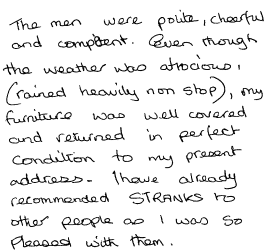 The men were polite, cheerful
and competent. Even though
the weather was atrocious,
(rained heavily non stop), my
furniture was well covered
and returned in perfect
condition to my present
address. I have already
recommended STRANKS to
other people as I was so
pleased with them.